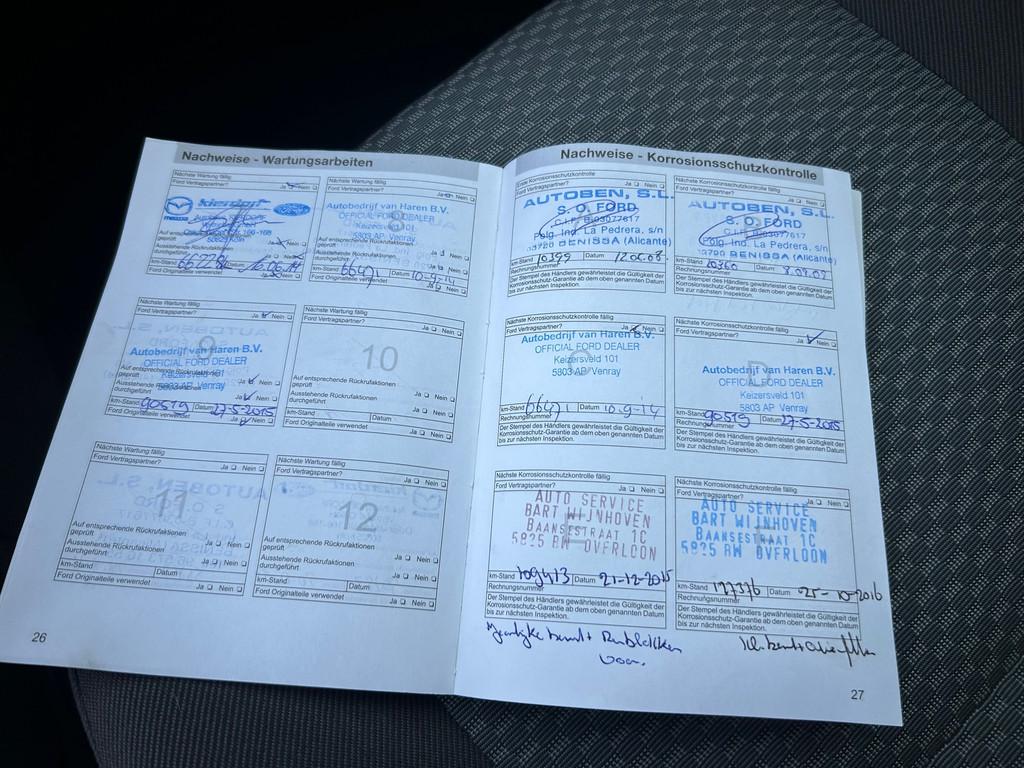 Nachweise - Wartungsarbeiten
Nächste Wartung fällig
Ford Vertragspartner? Ja Nein
mazda Kierdorf Ford
50829 Köln
Auf entsprechende Rückrufaktionen
geprüft Ja Nein
Ausstehende Rückrufaktionen
durchgeführt Ja Nein
km-Stand Datum 16.06.14
Ford Originalteile verwendet Ja Nein
Nächste Wartung fällig
Ford Vertragspartner? Ja Nein
8
Autobedrijf van Haren B.V.
OFFICIAL FORD DEALER
Keizersveld 101
5803 AP Venray
Auf entsprechende Rückrufaktionen
geprüft Ja Nein
Ausstehende Rückrufaktionen
durchgeführt Ja Nein
km-Stand 66471 Datum 10-9-14
Ford Originalteile verwendet Ja Nein
Nächste Wartung fällig
Ford Vertragspartner? Ja Nein
9
Autobedrijf van Haren B.V.
OFFICIAL FORD DEALER
Keizersveld 101
5803 AP Venray
Auf entsprechende Rückrufaktionen
geprüft Ja Nein
Ausstehende Rückrufaktionen
durchgeführt Ja Nein
km-Stand 90519 Datum 27-5-2015
Ford Originalteile verwendet Ja Nein
Nächste Wartung fällig
Ford Vertragspartner? Ja Nein
10
Auf entsprechende Rückrufaktionen
geprüft Ja Nein
Ausstehende Rückrufaktionen
durchgeführt Ja Nein
km-Stand Datum
Ford Originalteile verwendet Ja Nein
Nächste Wartung fällig
Ford Vertragspartner? Ja Nein
11
Auf entsprechende Rückrufaktionen
geprüft Ja Nein
Ausstehende Rückrufaktionen
durchgeführt Ja Nein
km-Stand Datum
Ford Originalteile verwendet Ja Nein
Nächste Wartung fällig
Ford Vertragspartner? Ja Nein
12
Auf entsprechende Rückrufaktionen
geprüft Ja Nein
Ausstehende Rückrufaktionen
durchgeführt Ja Nein
km-Stand Datum
Ford Originalteile verwendet Ja Nein
26
Nachweise - Korrosionsschutzkontrolle
Erste Korrosionsschutzkontrolle
Ford Vertragspartner? Ja Nein
AUTOBEN, S.L.
S. O. FORD
C.I.F. B-03077617
Polg. Ind. La Pedrera, s/n
03720 BENISSA (Alicante)
km-Stand 10399 Datum 12.06.08
Rechnungsnummer
Der Stempel des Händlers gewährleistet die Gültigkeit der
Korrosions-Garantie ab dem oben genannten Datum
bis zur nächsten Inspektion.
Nächste Korrosionsschutzkontrolle fällig
Ford Vertragspartner? Ja Nein
AUTOBEN, S.L.
S. O. FORD
C.I.F. B-03077617
Polg. Ind. La Pedrera, s/n
03720 BENISSA (Alicante)
km-Stand Datum
Rechnungsnummer
Der Stempel des Händlers gewährleistet die Gültigkeit der
Korrosions-Garantie ab dem oben genannten Datum
bis zur nächsten Inspektion.
Nächste Korrosionsschutzkontrolle fällig
Ford Vertragspartner? Ja Nein
Autobedrijf van Haren B.V.
OFFICIAL FORD DEALER
Keizersveld 101
5803 AP Venray
km-Stand 66471 Datum 10-9-14
Rechnungsnummer
Der Stempel des Händlers gewährleistet die Gültigkeit der
Korrosions-Garantie ab dem oben genannten Datum
bis zur nächsten Inspektion.
Nächste Korrosionsschutzkontrolle fällig
Ford Vertragspartner? Ja Nein
D
Autobedrijf van Haren B.V.
OFFICIAL FORD DEALER
Keizersveld 101
5803 AP Venray
km-Stand 90519 Datum 27-5-2015
Rechnungsnummer
Der Stempel des Händlers gewährleistet die Gültigkeit der
Korrosions-Garantie ab dem oben genannten Datum
bis zur nächsten Inspektion.
Nächste Korrosionsschutzkontrolle fällig
Ford Vertragspartner? Ja Nein
AUTO SERVICE
BART WIJNHOVEN
BAANSESTRAAT 1C
5825 BW OVERLOON
km-Stand 109413 Datum 21-12-2015
Rechnungsnummer
Der Stempel des Händlers gewährleistet die Gültigkeit der
Korrosions-Garantie ab dem oben genannten Datum
bis zur nächsten Inspektion.
Nächste Korrosionsschutzkontrolle fällig
Ford Vertragspartner? Ja Nein
AUTO SERVICE
BART WIJNHOVEN
BAANSESTRAAT 1C
5825 BW OVERLOON
km-Stand 127376 Datum 25-10-2016
Rechnungsnummer
Der Stempel des Händlers gewährleistet die Gültigkeit der
Korrosions-Garantie ab dem oben genannten Datum
bis zur nächsten Inspektion.
beurt + Remblokken
voor.
27